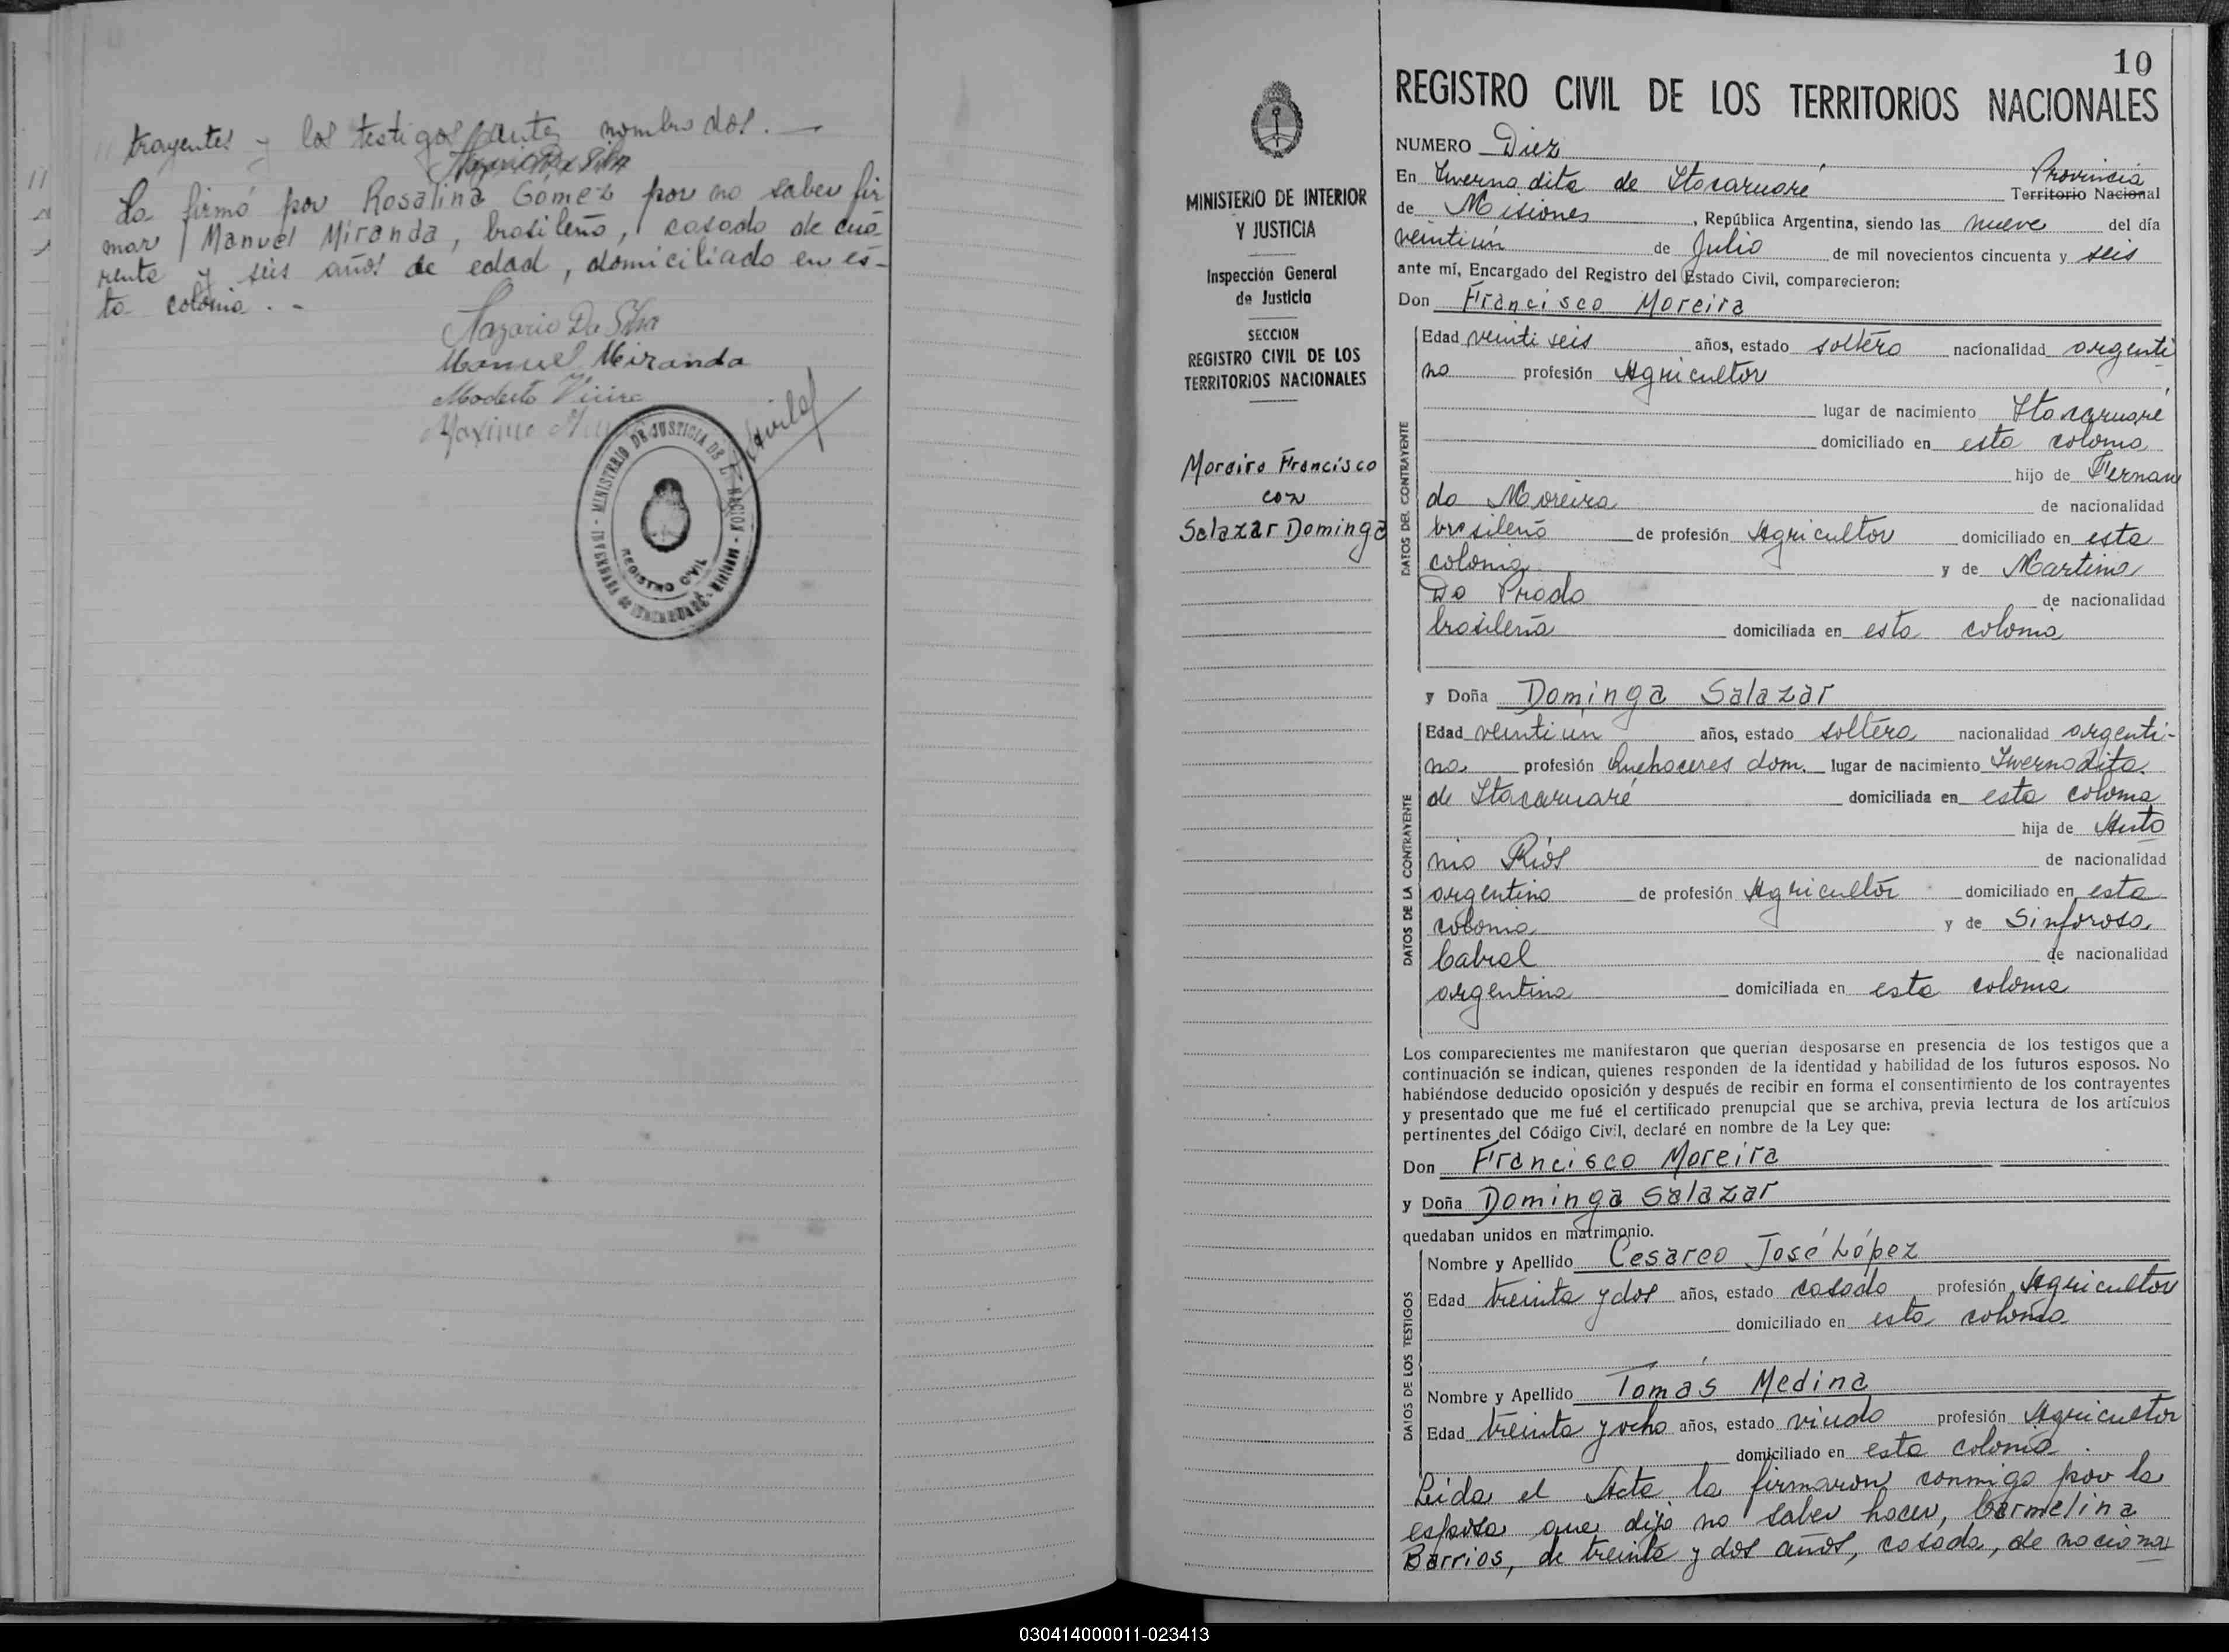 trayentes y los testigos antes nombrados. —
Nazario Da Silva
La firmó por Rosalina Gomez por no saber fir
mar Manuel Miranda, brasileño, casado de cua-
renta y seis años de edad, domiciliado en es-
ta colonia. -
Nazario Da Silva
Manuel Miranda
Modesto Vieira
Maximo
MINISTERIO DE JUSTICIA DE LA NACION - MISIONES -
REGISTRO CIVIL
10
REGISTRO CIVIL DE LOS TERRITORIOS NACIONALES
MINISTERIO DE INTERIOR
Y JUSTICIA
Inspección General
de Justicia
SECCION
REGISTRO CIVIL DE LOS
TERRITORIOS NACIONALES
Moreira Francisco
con
Salazar Dominga
NUMERO Diez
Provincia
En Invernadita de Itacaruaré Territorio Nacional
de Misiones, República Argentina, siendo las nueve del día
veintiún de Julio de mil novecientos cincuenta y seis
ante mí, Encargado del Registro del Estado Civil, comparecieron:
Don Francisco Moreira
DATOS DEL CONTRAYENTE
Edad veintiseis años, estado soltero nacionalidad argenti
no profesión Agricultor
lugar de nacimiento Itacaruaré
domiciliado en esta colonia
hijo de Fernan
do Moreira de nacionalidad
brasileño de profesión Agricultor domiciliado en esta
colonia y de Martina
Do Prado de nacionalidad
brasileña domiciliada en esta colonia
y Doña Dominga Salazar
DATOS DE LA CONTRAYENTE
Edad veintiun años, estado soltera nacionalidad argenti-
na profesión Quehaceres dom. lugar de nacimiento Invernadita
de Itacaruaré domiciliada en esta colonia
hija de Anto
nio Ríos de nacionalidad
argentino de profesión Agricultor domiciliado en esta
colonia y de Sinforosa
Cabral de nacionalidad
argentina domiciliada en esta colonia
Los comparecientes me manifestaron que querían desposarse en presencia de los testigos que a
continuación se indican, quienes responden de la identidad y habilidad de los futuros esposos. No
habiéndose deducido oposición y después de recibir en forma el consentimiento de los contrayentes
y presentado que me fué el certificado prenupcial que se archiva, previa lectura de los artículos
pertinentes del Código Civil, declaré en nombre de la Ley que:
Don Francisco Moreira
y Doña Dominga Salazar
quedaban unidos en matrimonio.
DATOS DE LOS TESTIGOS
Nombre y Apellido Cesareo José López
Edad treinta y dos años, estado casado profesión Agricultor
domiciliado en esta colonia
Nombre y Apellido Tomás Medina
Edad treinta y ocho años, estado viudo profesión Agricultor
domiciliado en esta colonia.
Leida el Acta la firmaron conmigo por la
esposa que dijo no saber hacer, Carmelina
Barrios, de treinta y dos años, casada, de naciona
030414000011-023413